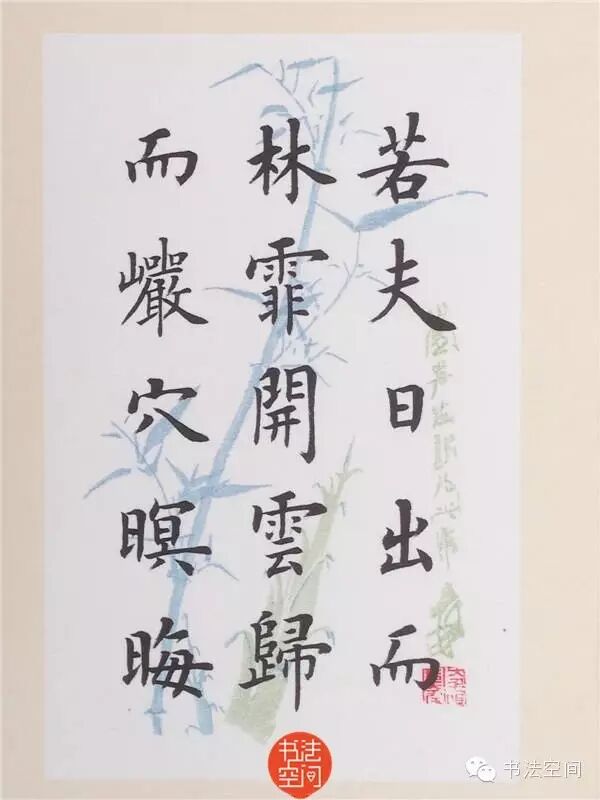 若夫日出而
林霏開雲歸
而巖穴暝晦
书法空间
书法空间